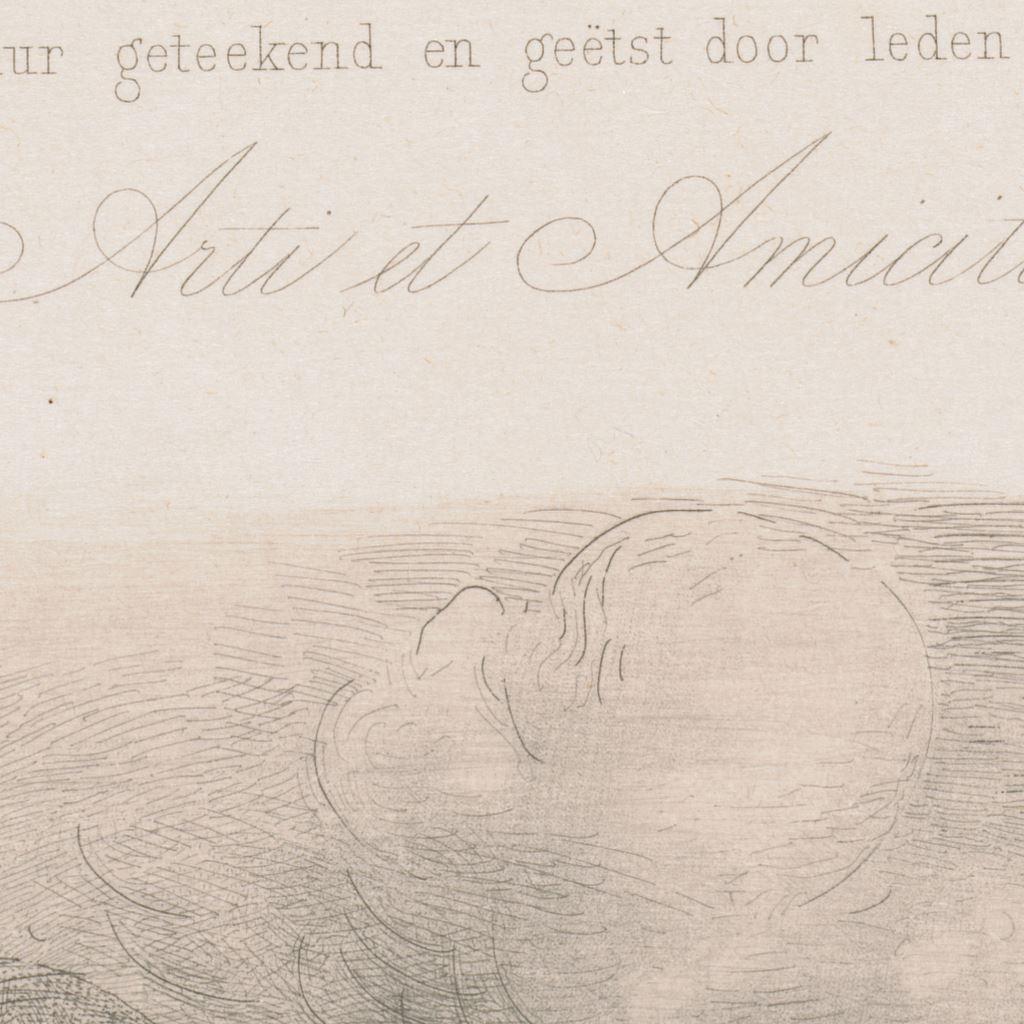 uur geteekend en geëtst door leden
Arti et Amicit